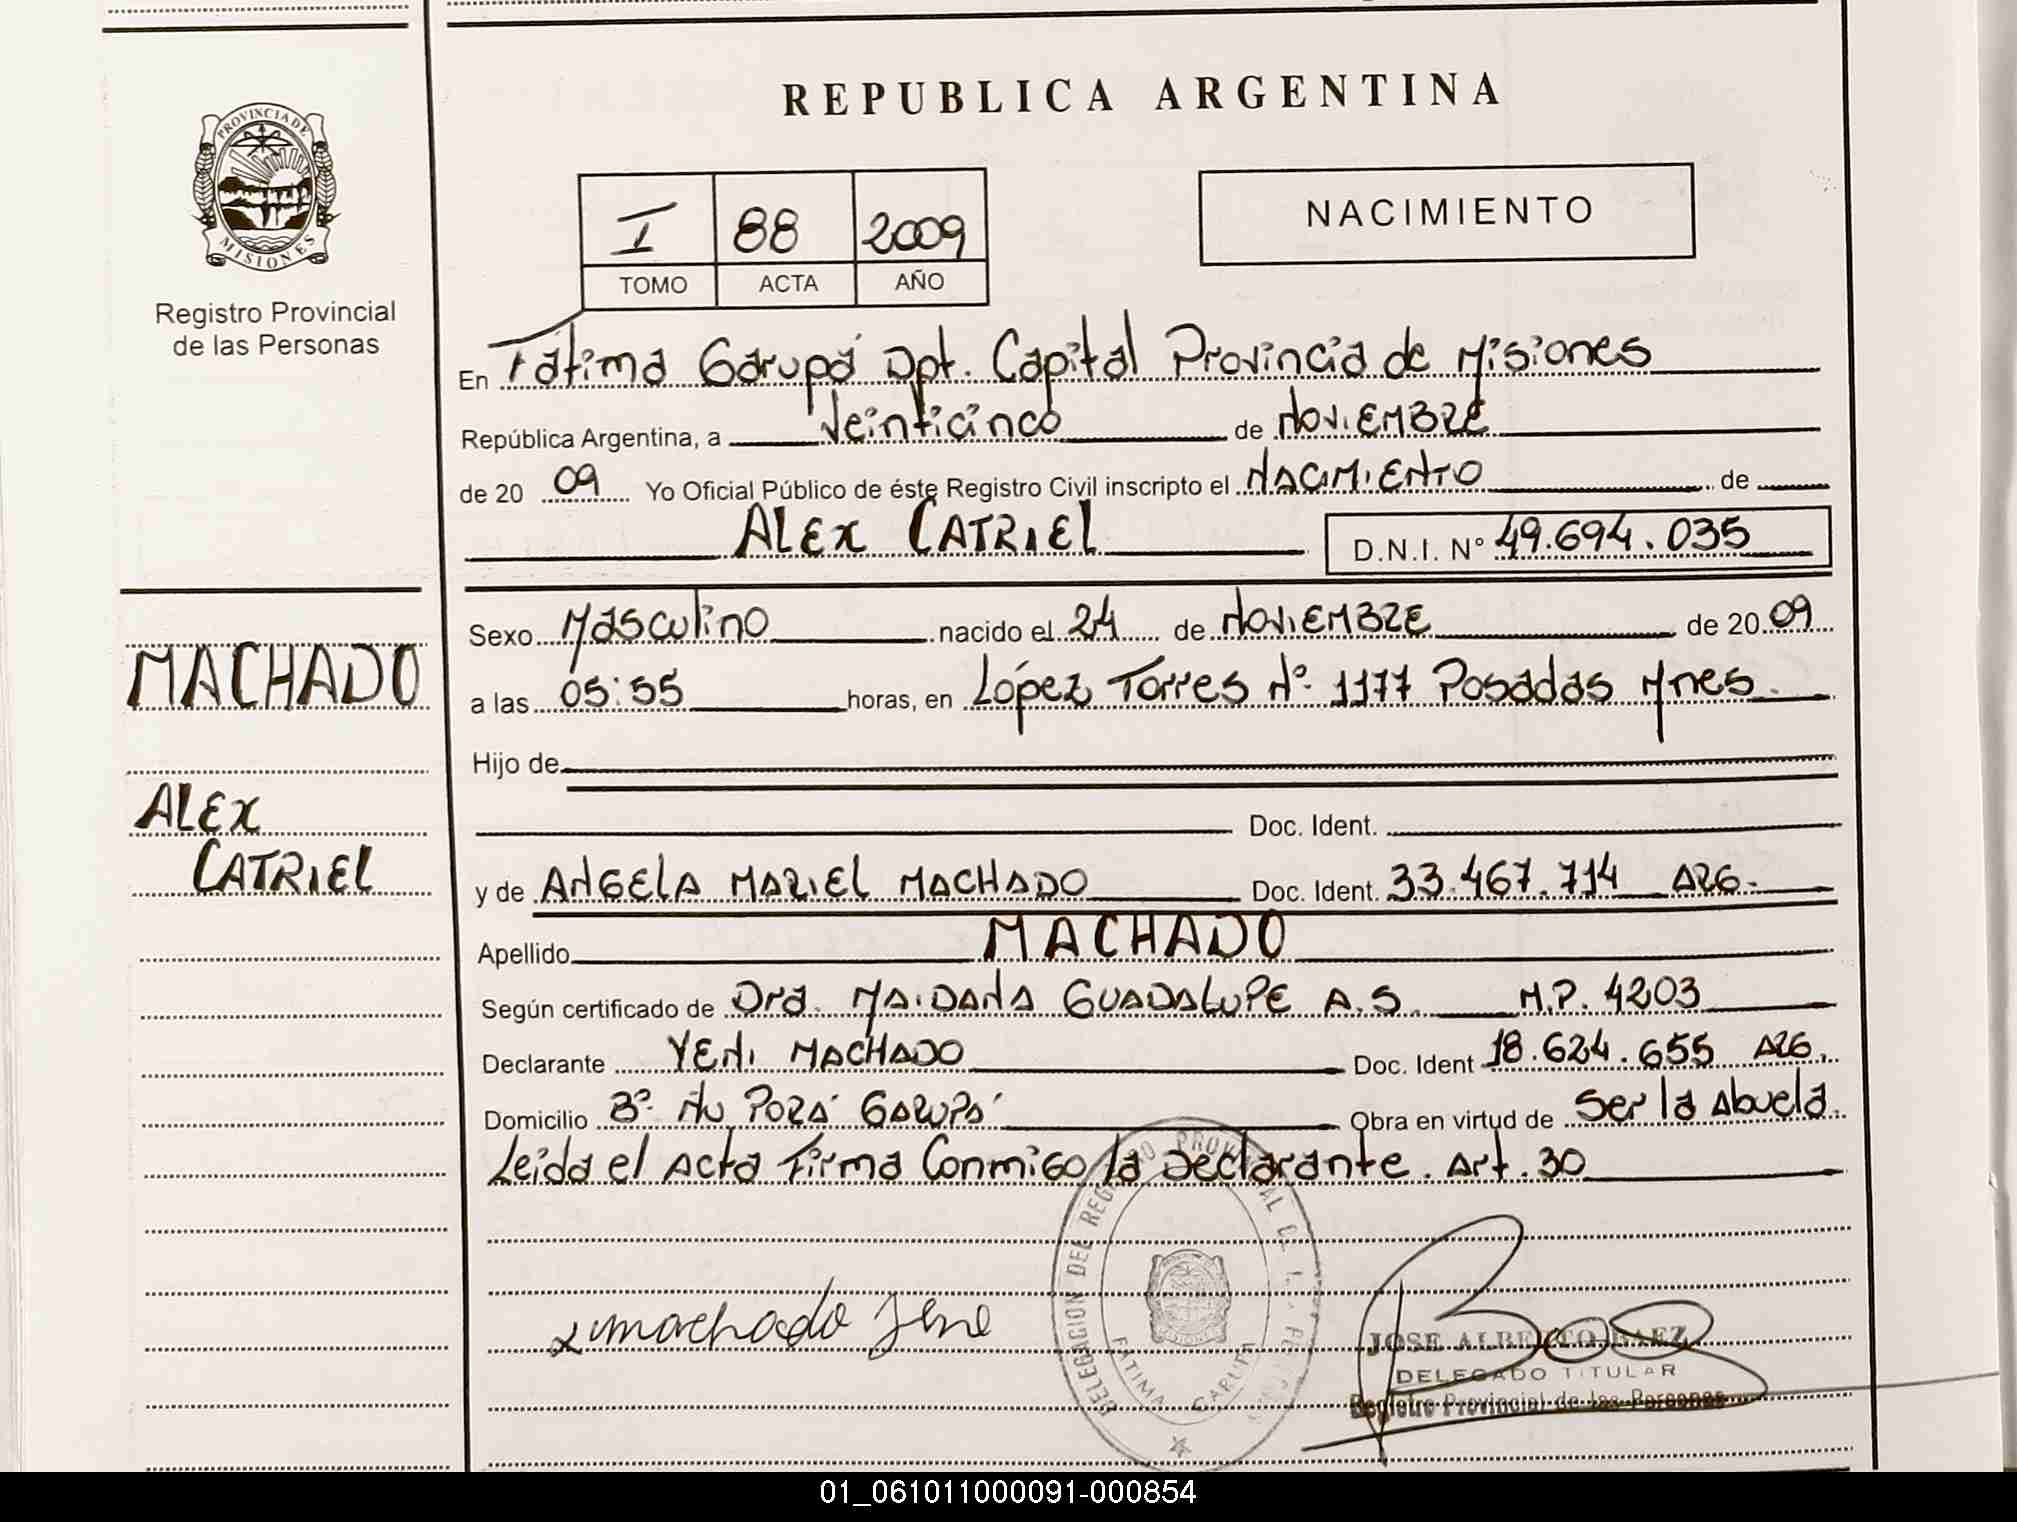 REPUBLICA ARGENTINA
PROVINCIA DE
MISIONES
Registro Provincial
de las Personas
I 88 2009
TOMO ACTA AÑO
NACIMIENTO
En Fátima Garupá Dpt. Capital Provincia de Misiones
República Argentina, a Veinticinco de NOViEMBRE
de 20 09 Yo Oficial Público de éste Registro Civil inscripto el NACiMiENTO de
ALEX CATRiEL D.N.I. N° 49.694.035
Sexo Masculino nacido el 24 de NOViEMBRE de 20 09
a las 05:55 horas, en López Torres N° 1177 Posadas Mnes.
Hijo de
Doc. Ident.
y de ANGELA MARiEL MACHADO Doc. Ident. 33.467.714 ARG.
Apellido MACHADO
Según certificado de Dra. MAiDANA GUADALUPE A.S. M.P. 4203
Declarante YENi MACHADO Doc. Ident 18.624.655 ARG.
Domicilio B° ÑU PORÁ GARUPÁ Obra en virtud de Ser la Abuela.
Leida el Acta Firma Conmigo la Declarante. Art. 30
MACHADO
ALEX
CATRiEL
machado Jene
DELEGACION DEL REGISTRO PROVINCIAL DE LAS PERSONAS
FATIMA GARUPA
JOSE ALBERTO BAEZ
DELEGADO TITULAR
Registro Provincial de las Personas
01_061011000091-000854